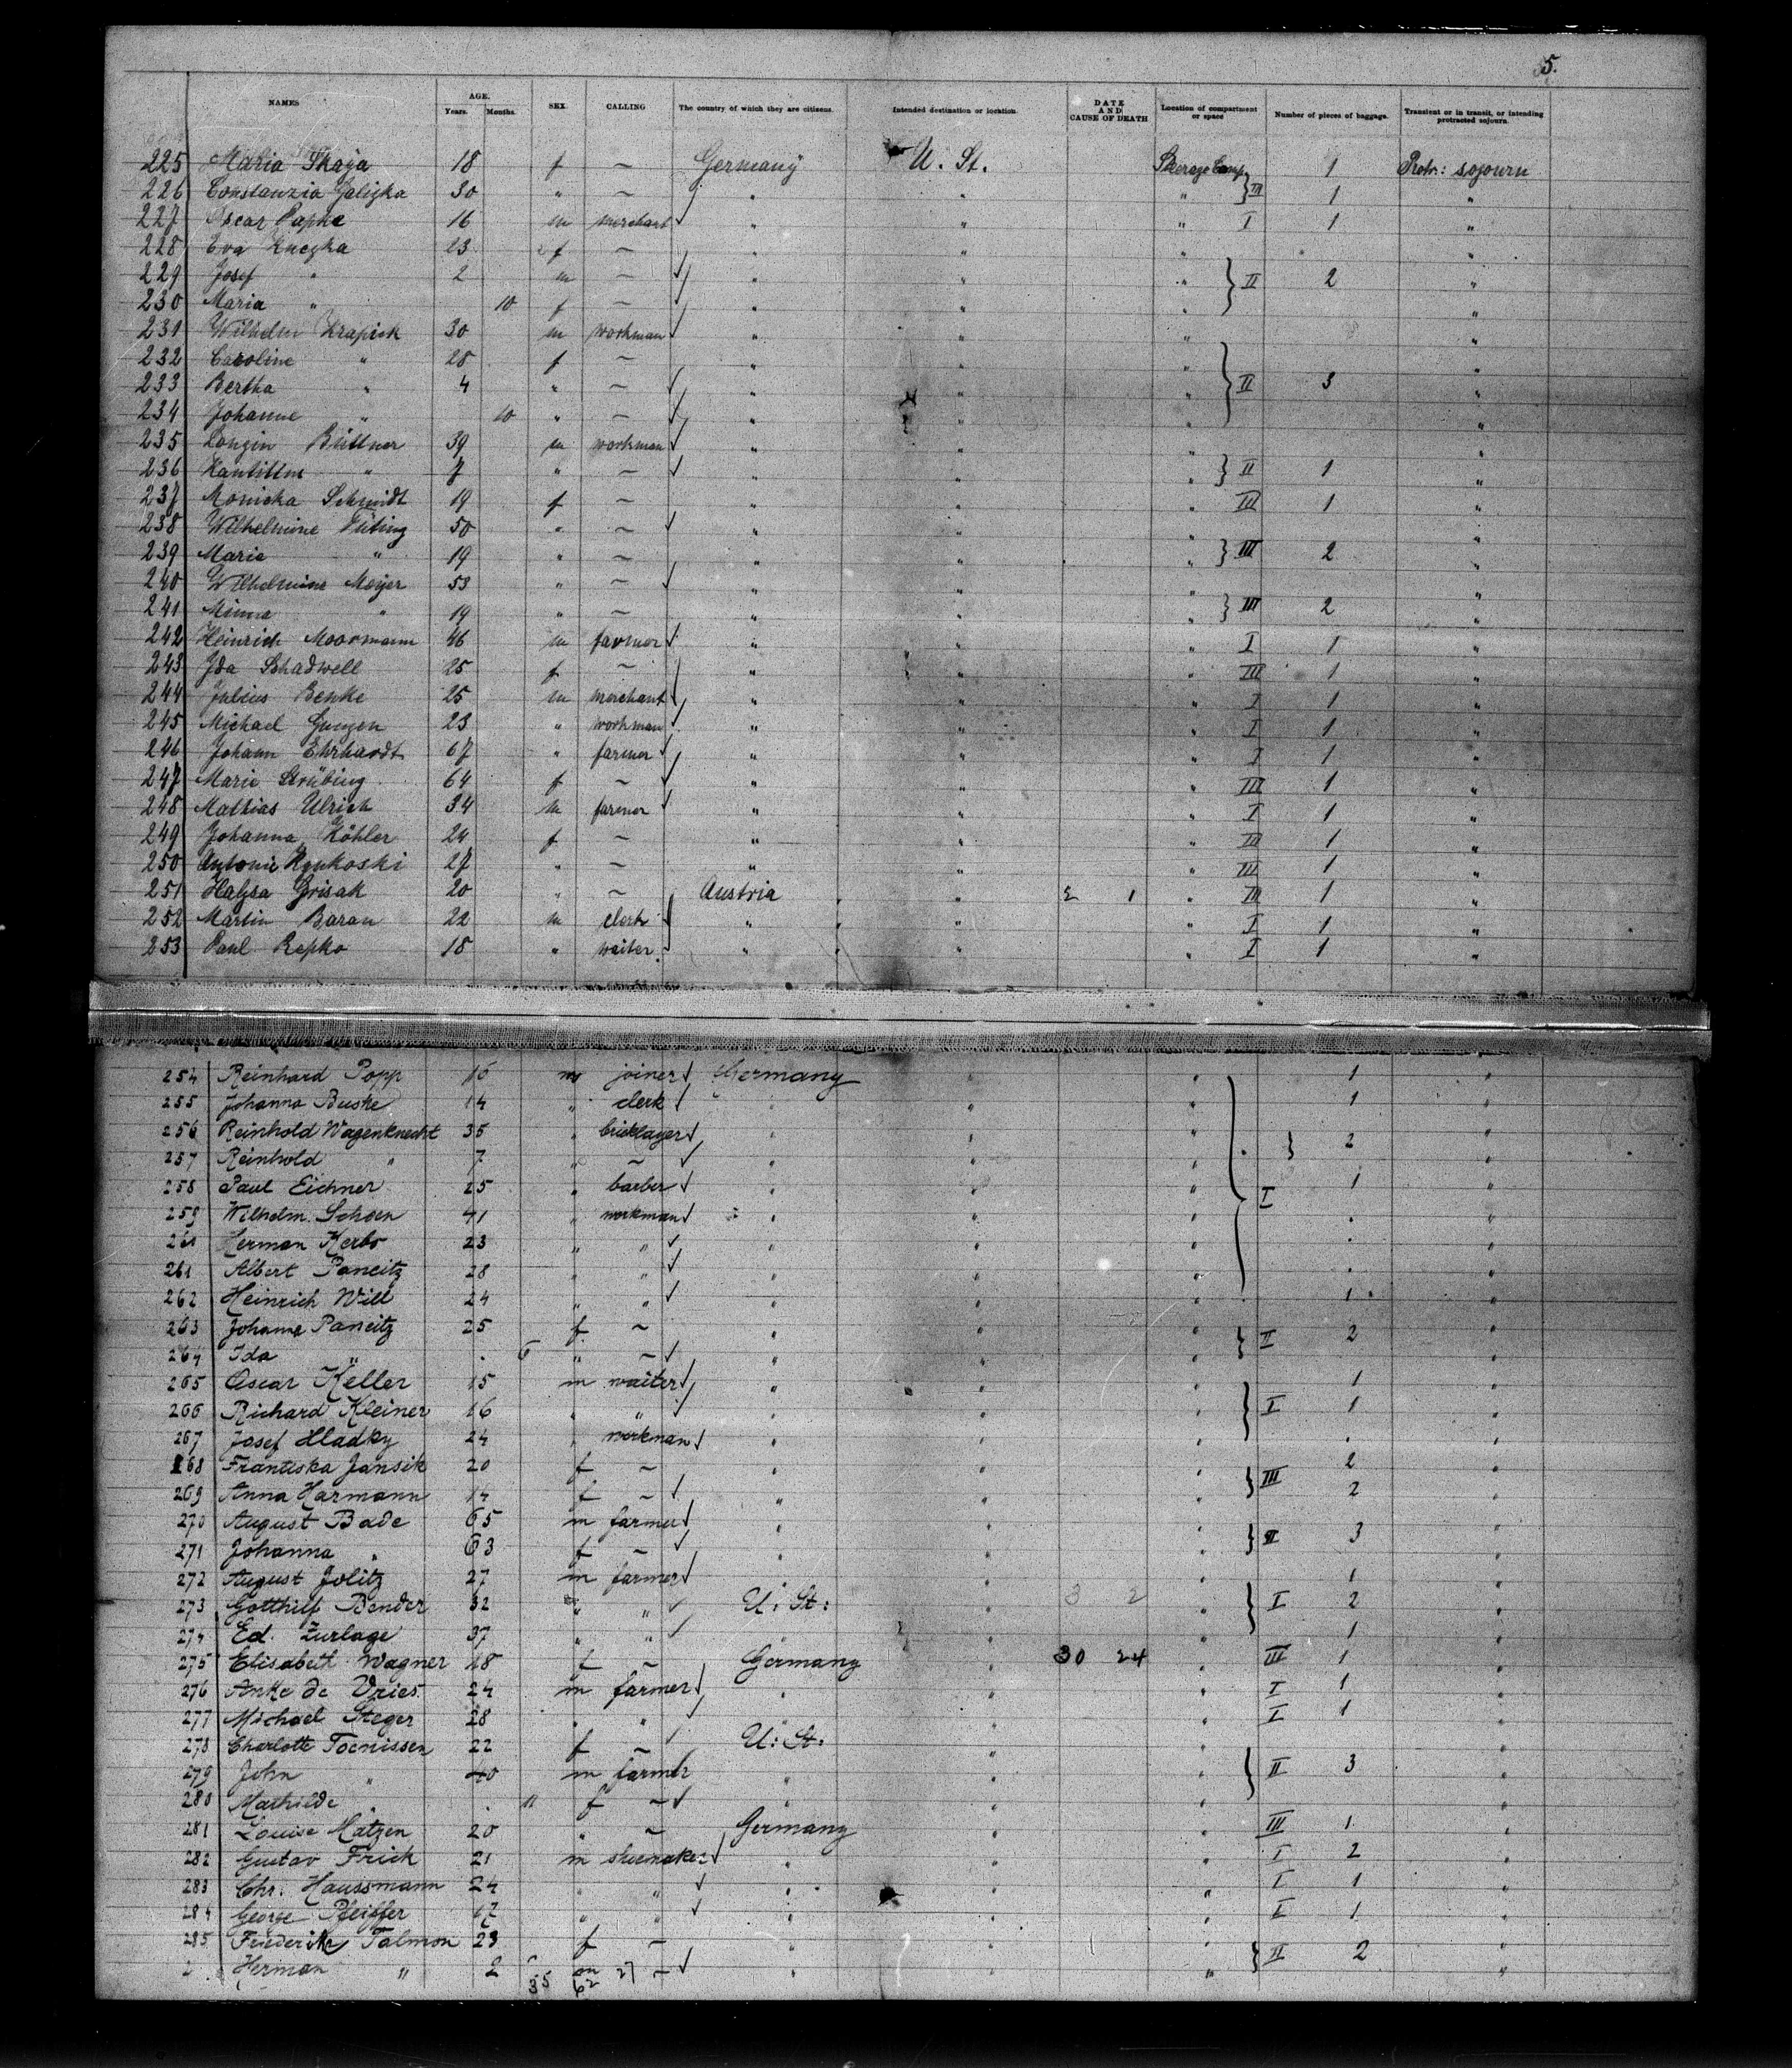 5.
NAMES AGE. Years. Months. SEX. CALLING The country of which they are citizens. Intended destination or location. DATE AND CAUSE OF DEATH Location of compartment or space Number of pieces of baggage. Transient or in transit, or intending protracted sojourn.
225 Maria Skaja 18 f — Germany U. St. Steerage Comp 1 Protr: sojourn
226 Constanzia Galizka 30 " — " " " } III 1 "
227 Oscar Papke 16 m merchant " " " I 1 "
228 Eva Kuczka 23 f — " " " "
229 Josef " 2 m — " " " } II 2 "
230 Maria " 10 f — " " " "
231 Wilhelm Krapick 30 m workman " " " "
232 Caroline " 28 f — " " " "
233 Bertha " 4 " — " " " } II 3 "
234 Johanne " 10 " — " " " "
235 Longin Büttner 39 m workman " " " "
236 " 7 " — " " " } II 1 "
237 Monicka Schmidt 19 f — " " " III 1 "
238 Wilhelmine 50 " — " " " "
239 Marie " 19 " — " " " } III 2 "
240 Wilhelmine Meyer 53 " — " " " "
241 Minna " 19 " — " " " } III 2 "
242 Heinrich Moormann 46 m farmer " " " I 1 "
243 Ida Schadwell 25 f — " " " III 1 "
244 Julius Benke 25 m merchant " " " I 1 "
245 Michael Gunzen 23 " workman " " " I 1 "
246 Johann Ehrhardt 67 " farmer " " " I 1 "
247 Marie Strübing 64 f — " " " III 1 "
248 Mathias Ulrich 34 m farmer " " " I 1 "
249 Johanna Köhler 24 f — " " " III 1 "
250 Antonie Rynkoski 27 " — " " " III 1 "
251 Halysa Grisak 20 " — Austria " 2 1 " III 1 "
252 Martin Baran 22 m clerk " " " I 1 "
253 Paul Repko 18 " waiter " " " I 1 "
254 Reinhard Popp 16 m joiner Germany " 1 "
255 Johanna Buske 14 " clerk " " " 1 "
256 Reinhold Wagenknecht 35 " bricklayer " " " } 2 "
257 Reinhold " 7 " — " " " "
258 Paul Eichner 25 " barber " " " } I 1 "
259 Wilhelm Schoen 41 " workman " " " " "
260 Herman Kerbs 23 " " " " " " "
261 Albert Paneitz 28 " " " " " " "
262 Heinrich Will 24 " " " " " 1 "
263 Johanne Paneitz 25 f — " " " } II 2 "
264 Ida " 6 " — " " " "
265 Oscar Keller 15 m waiter " " " 1 "
266 Richard Kleiner 16 " " " " " } I 1 "
267 Josef Hladky 24 " workman " " " " "
268 Frantiska Jansik 20 f — " " " } III 2 "
269 Anna Harmann 14 f — " " " 2 "
270 August Bade 65 m farmer " " " } II 3 "
271 Johanna " 63 f — " " " "
272 August Jolitz 27 m farmer " " " 1 "
273 Gotthilf Bender 32 " " U: St: " 3 2 " } I 2 "
274 Ed. Zurlage 37 " " " " " 1 "
275 Elisabeth Wagner 18 f — Germany " 30 24 " III 1 "
276 Anke de Vries 24 m farmer " " " I 1 "
277 Michael Steger 28 " " " " " I 1 "
278 Charlotte Toenissen 22 f — U: St: " " "
279 John " 40 m farmer " " " } II 3 "
280 Mathilde " 11 f — " " " "
281 Louise Matzen 20 " — Germany " " III 1 "
282 Gustav Frick 21 m shoemaker " " " I 2 "
283 Chr. Haussmann 24 " " " " " I 1 "
284 George Pfeiffer 67 " " " " " I 1 "
285 Friederike Talmon 23 f — " " " } II 2 "
2 Herman " 2 m — " " " "
35 62 27